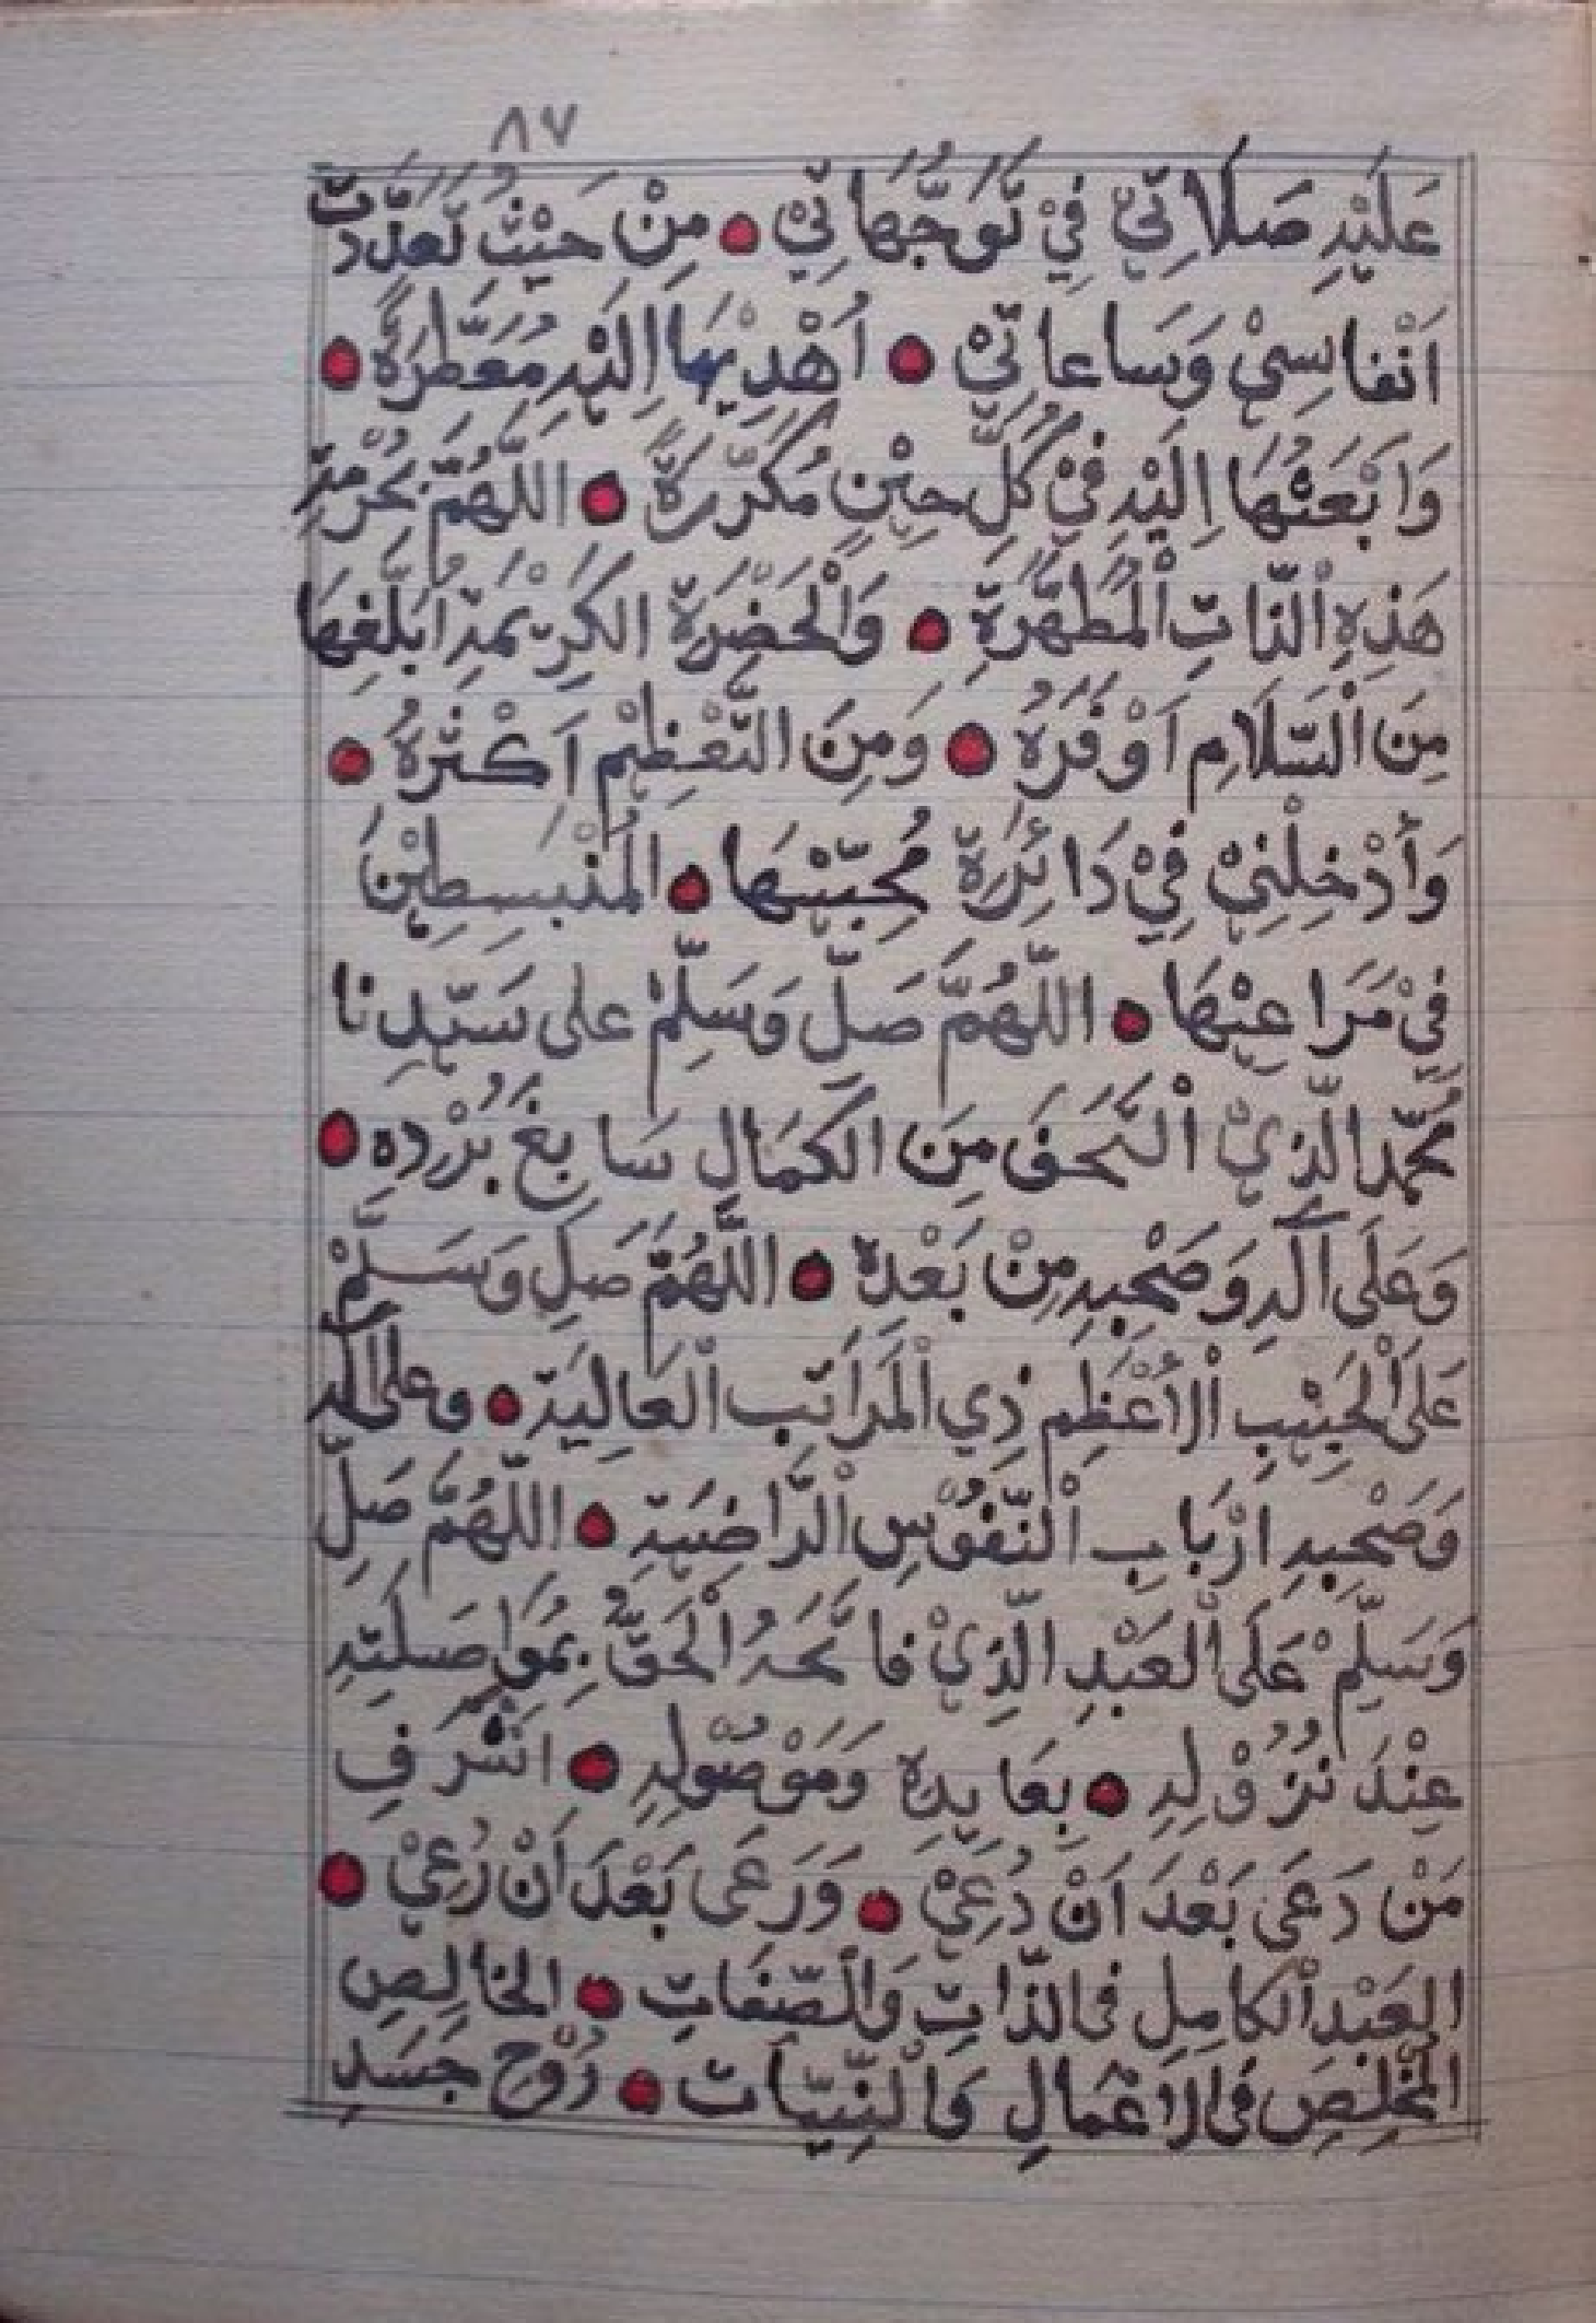 ٨٧
عَلَيْهِ صَلَاتِيْ فِيْ تَوَجُّهَاتِيْ ● مِنْ حَيْثُ تَعَدَّدَتْ
اَنْفَاسِيْ وَسَاعَاتِيْ ● اُهْدِيْهَا اِلَيْهِ مُعَطَّرَةً ●
وَابْعَثُهَا اِلَيْهِ فِيْ كُلِّ حِيْنٍ مُكَرَّرَةً ● اللّٰهُمَّ بِحُرْمَةِ
هَذِهِ الذَّاتِ الْمُطَهَّرَةِ ● وَالْحَضْرَةِ الكَرِيْمَةِ اَبْلِغْهَا
مِنَ السَّلَامِ اَوْفَرَهُ ● وَمِنَ التَّعْظِيْمِ اَكْثَرَهُ ●
وَأَدْخِلْنِيْ فِيْ دَائِرَةِ مُحِبِّيْهَا ● المُنْبَسِطِيْنَ
فِيْ مَرَاعِيْهَا ● اللّٰهُمَّ صَلِّ وَسَلِّمْ على سَيِّدِنَا
مُحَمَّدِ الَّذِيْ الْتَحَفَ مِنَ الكَمَالِ سَابِغَ بُرْدِهِ ●
وَعَلَى آلِهِ وَصَحْبِهِ مِنْ بَعْدِهِ ● اللّٰهُمَّ صَلِ وَسَلِّمْ
عَلَى الْحَبِيْبِ الْأَعْظَمِ ذِي الْمَرَاتِبِ الْعَالِيَةِ ● وعلى آله
وَصَحْبِهِ ارْبَابِ النُّفُوْسِ الرَّاضِيَةِ ● اللّٰهُمَّ صَلِّ
وَسَلِّمْ عَلَى الْعَبْدِ الَّذِيْ فَاتَحَهُ الْحَقُّ بِمُوَاصَلَتِهِ
عِنْدَ نُزُوْلِهِ ● بِعَايِدِهِ وَمَوْصُوْلِهِ ● اَشْرَفِ
مَنْ دَعَى بَعْدَ اَنْ دُعِيْ ● وَرَعَى بَعْدَ اَنْ رُعِيْ ●
العَبْدِ الْكَامِلِ فى الذَّاتِ وَالصِّفَاتِ ● الخَالِصِ
المُخْلِصِ فى الاَعْمَالِ وَالنِّيَّاتِ ● رُوْحِ جَسَدِ